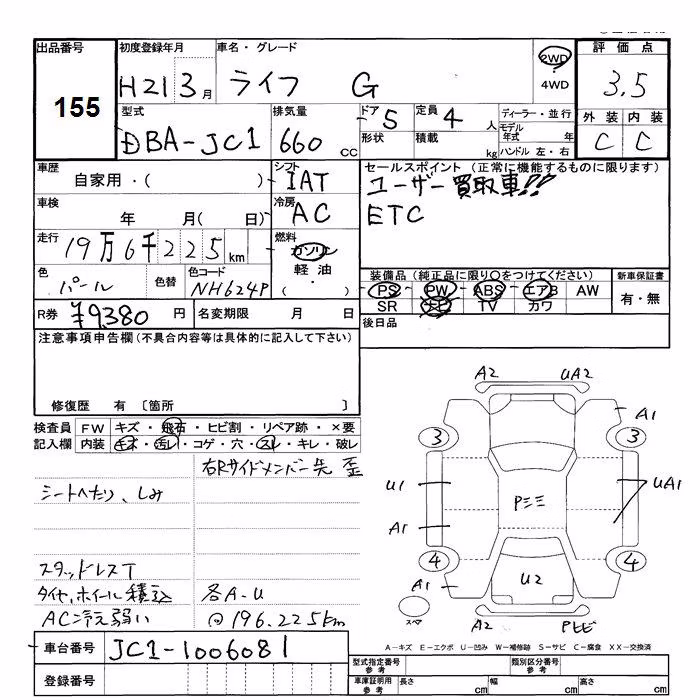 出品番号 初度登録年月 車名・グレード 2WD 評価点
155 H21 3月 ライフ G 4WD 3.5
型式 排気量 ドア 5 定員 4 人 ディーラー・並行 外装 内装
DBA-JC1 660 cc 形状 積載 kg モデル年式 年 C C
ハンドル 左・右
車歴 シフト セールスポイント (正常に機能するものに限ります)
自家用・( ) IAT ユーザー買取車!!
車検 冷房 ETC
年 月( 日) AC
走行 燃料
19万6千225km ガソリン
色 色替 色コード 軽油 装備品 (純正品に限り○をつけてください) 新車保証書
パール NH624P ( ・ ) PS PW ABS エアB AW 有・無
SR ナビ TV カワ
R券 ¥9,380 円 名変期限 月 日 後日品
注意事項申告欄 (不具合内容等は具体的に記入して下さい)
修復歴 有 〔箇所 〕
検査員 FW キズ・飛石・ヒビ割・リペア跡・×要
記入欄 内装 キズ・汚レ・コゲ・穴・スレ・キレ・破レ
右Rサイドメンバー先 歪
シートへたり、しみ
スタッドレスT
タイヤ、ホイール積込 各A-U
AC冷え弱い 196.225km
A2 UA2
A1
3 3
U1 UA1
Pミミ
A1
4 4
A1 U2
スペア
A2 Pヒビ
A－キズ E－エクボ U－凹み W－補修跡 S－サビ C－腐食 XX－交換済
車台番号 JC1-1006081
登録番号
型式指定番号 参考 類別区分番号 参考
車庫証明用 参考 長さ cm 幅 cm 高さ cm